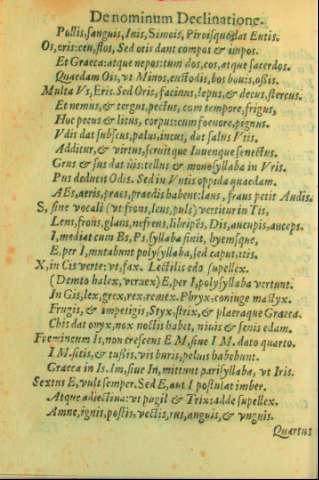 De nominum Declinatione.
Pollis, sanguis, Inis, Simois, Piroisque dat Entis.
Os, eris: ceu, flos, Sed oris dant compos & impos.
Et Græca: atque nepos: tum dos, cos, atque sacerdos.
Quædam Ois, ut Minos, custodis, bos bouis, ossis.
Multa Vs, Eris. Sed Oris, facinus, lepus, & decus, stercus.
Et nemus, & tergus, pectus, cum tempore, frigus,
Hoc pecus & litus, corpus: cum foenore, pignus.
Vdis dat subscus, palus, incus, dat salus Vtis.
Additur, & virtus, seruitque Iuuenque senectus.
Grus & sus dat uis: tellus & monosyllaba in Vris.
Pus deducit Odis. Sed in Vntis oppida quædam.
AEs, aeris, praes, praedis habent: laus, fraus petit Audis.
S, sine vocali (ut frons, leus, puls) vertitur in Tis,
Lens, frons, glans, nefrens, libripens, Dis, aucupis, auceps.
I, mediat cum Bs, Ps. syllaba finit, hyemsque,
E, per I, mutabunt polysyllaba, sed caput, itis.
X, in Cis verte: ut, fax. Lectilis edo supellex.
(Demto halex, veruex) E, per I, polysyllaba vertunt.
In Gis, lex, grex, rex: remex. Phryx: coniuge mastyx.
Frugis, & impetigis, Styx, strix, & pleraque Græca.
Chis dat onyx, nox noctis habet, niuis & senis edam.
Foemineum Is, non crescens E M, siue I M. dato quarto.
I M. sitis, & tussis, vis buris, peluis habebunt.
Græca in Is. Im, siue In, mittunt parisyllaba, ut Iris.
Sextus E, vult semper. Sed E, aut I postulat imber.
Atque adiectiua: ut pugil & Trix: adde supellex.
Amne, ignis, postis: vectis, rus, anguis, & vnguis.
Quartus